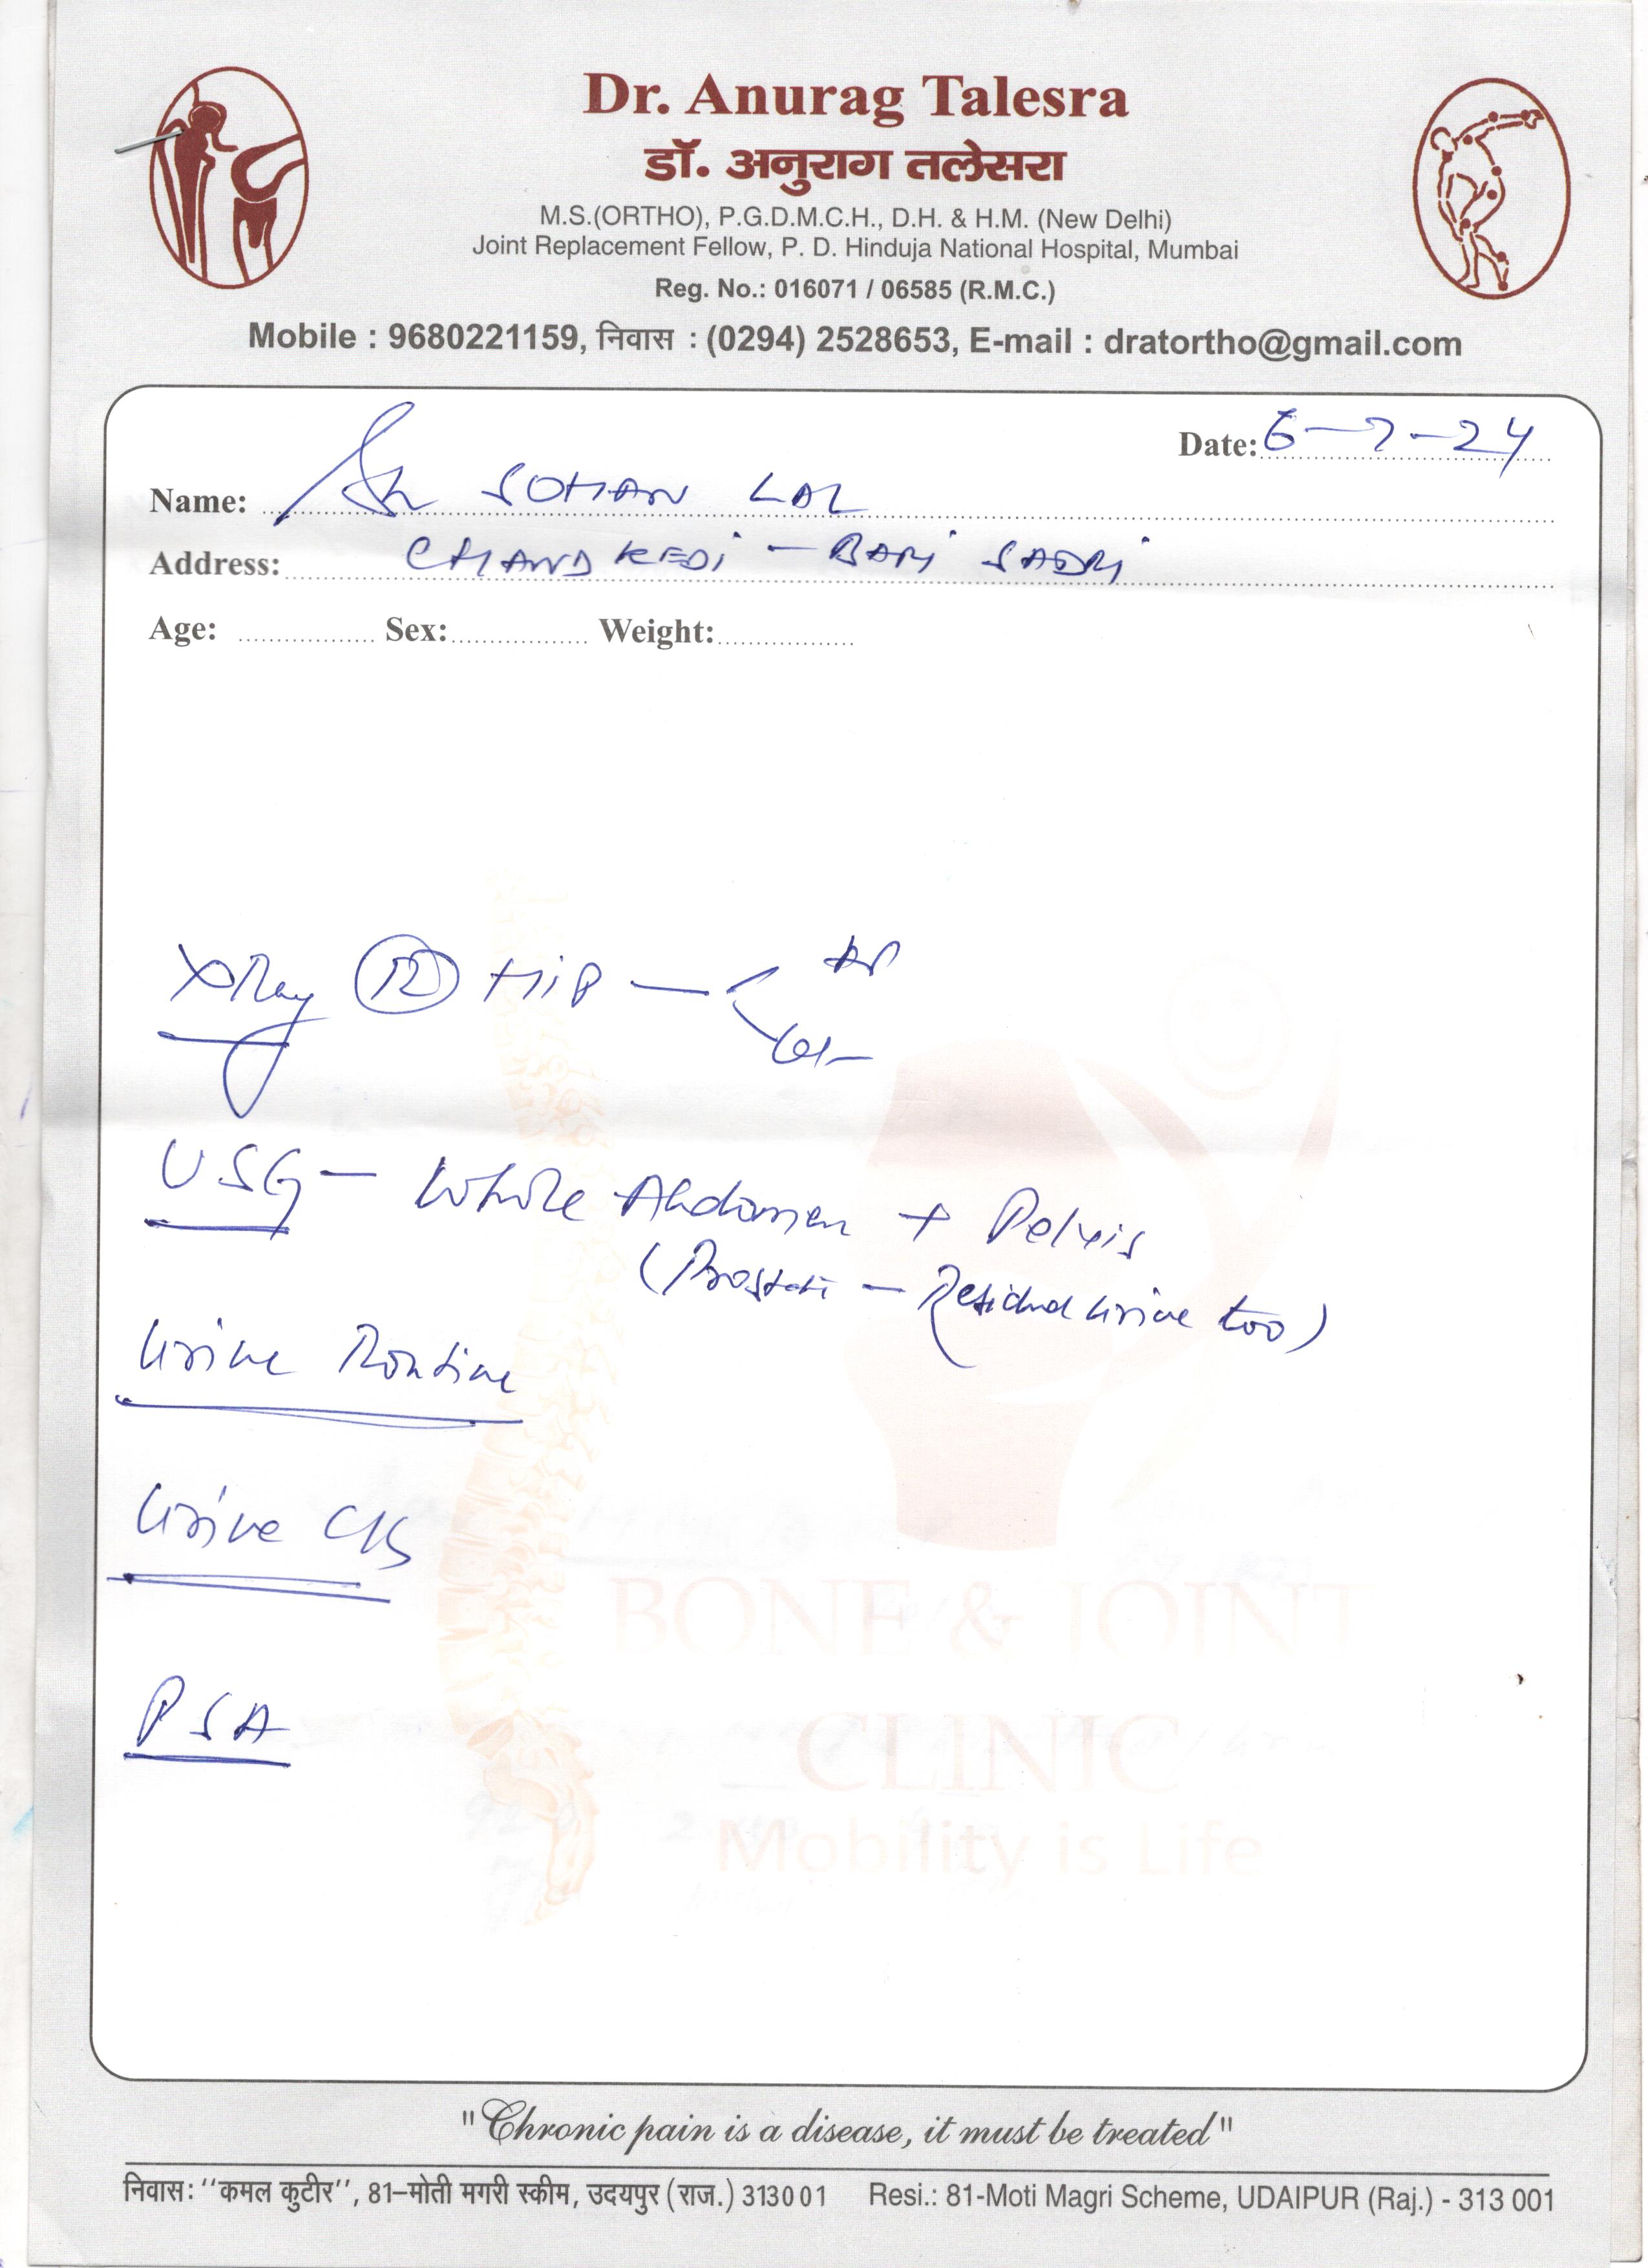 Dr. Anurag Talesra
डॉ. अनुराग तलेसरा
M.S.(ORTHO), P.G.D.M.C.H., D.H. & H.M. (New Delhi)
Joint Replacement Fellow, P. D. Hinduja National Hospital, Mumbai
Reg. No.: 016071 / 06585 (R.M.C.)
Mobile : 9680221159, निवास : (0294) 2528653, E-mail : dratortho@gmail.com
Date: 6-7-24
Name: Sh SOHAN LAL
Address: CHANDKEDi - BARi SADRi
Age: Sex: Weight:
XRay R HiP - AP
USG - Whole Abdomen + Pelvis
(Prostate - Residual Urine too)
Urine Routine
Urine C/S
PSA
BONE & JOINT
CLINIC
Mobility is Life
"Chronic pain is a disease, it must be treated"
निवास: ''कमल कुटीर'', 81-मोती मगरी स्कीम, उदयपुर (राज.) 313001 Resi.: 81-Moti Magri Scheme, UDAIPUR (Raj.) - 313 001